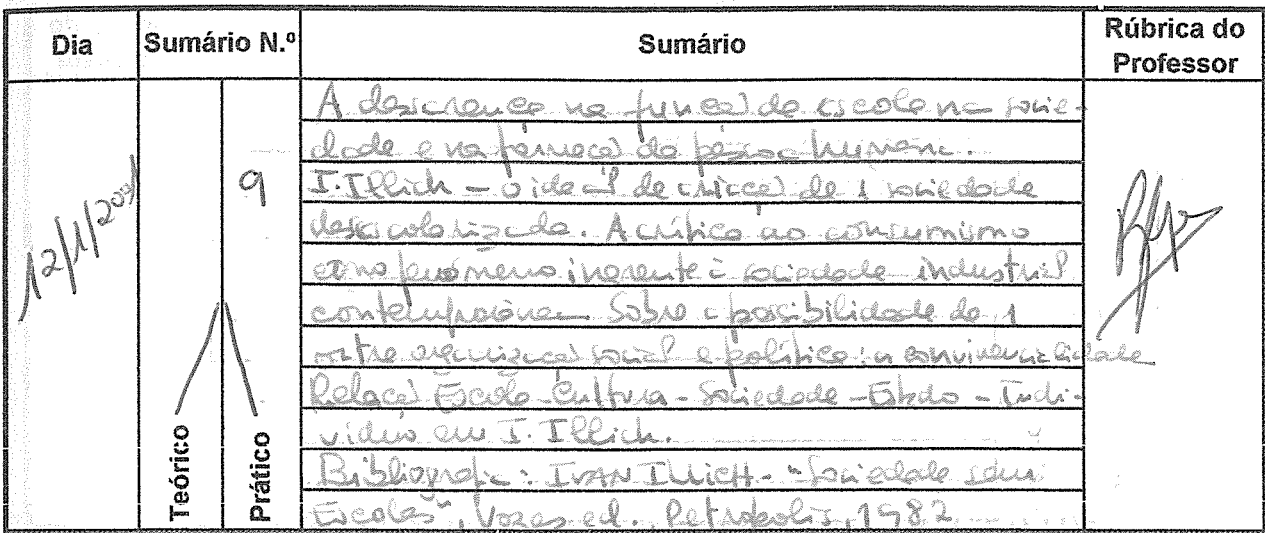 Dia Sumário N.º Sumário Rúbrica do Professor
12/1/2001
9
Teórico
Prático
A descrença na função da escola na socie-
dade e na formação da pessoa humana.
I. Illich - o ideal de criação de 1 sociedade
desescolarizada. A crítica ao consumismo
como fenómeno inerente à sociedade industrial
contemporânea. Sobre a possibilidade de 1
outra organização social e política: a convivencialidade
Relação Escola - Cultura - Sociedade - Estado - Indi-
víduo em I. Illich.
Bibliografia: IVAN ILLICH - "Sociedade sem
Escolas", Vozes ed. Petrópolis, 1982